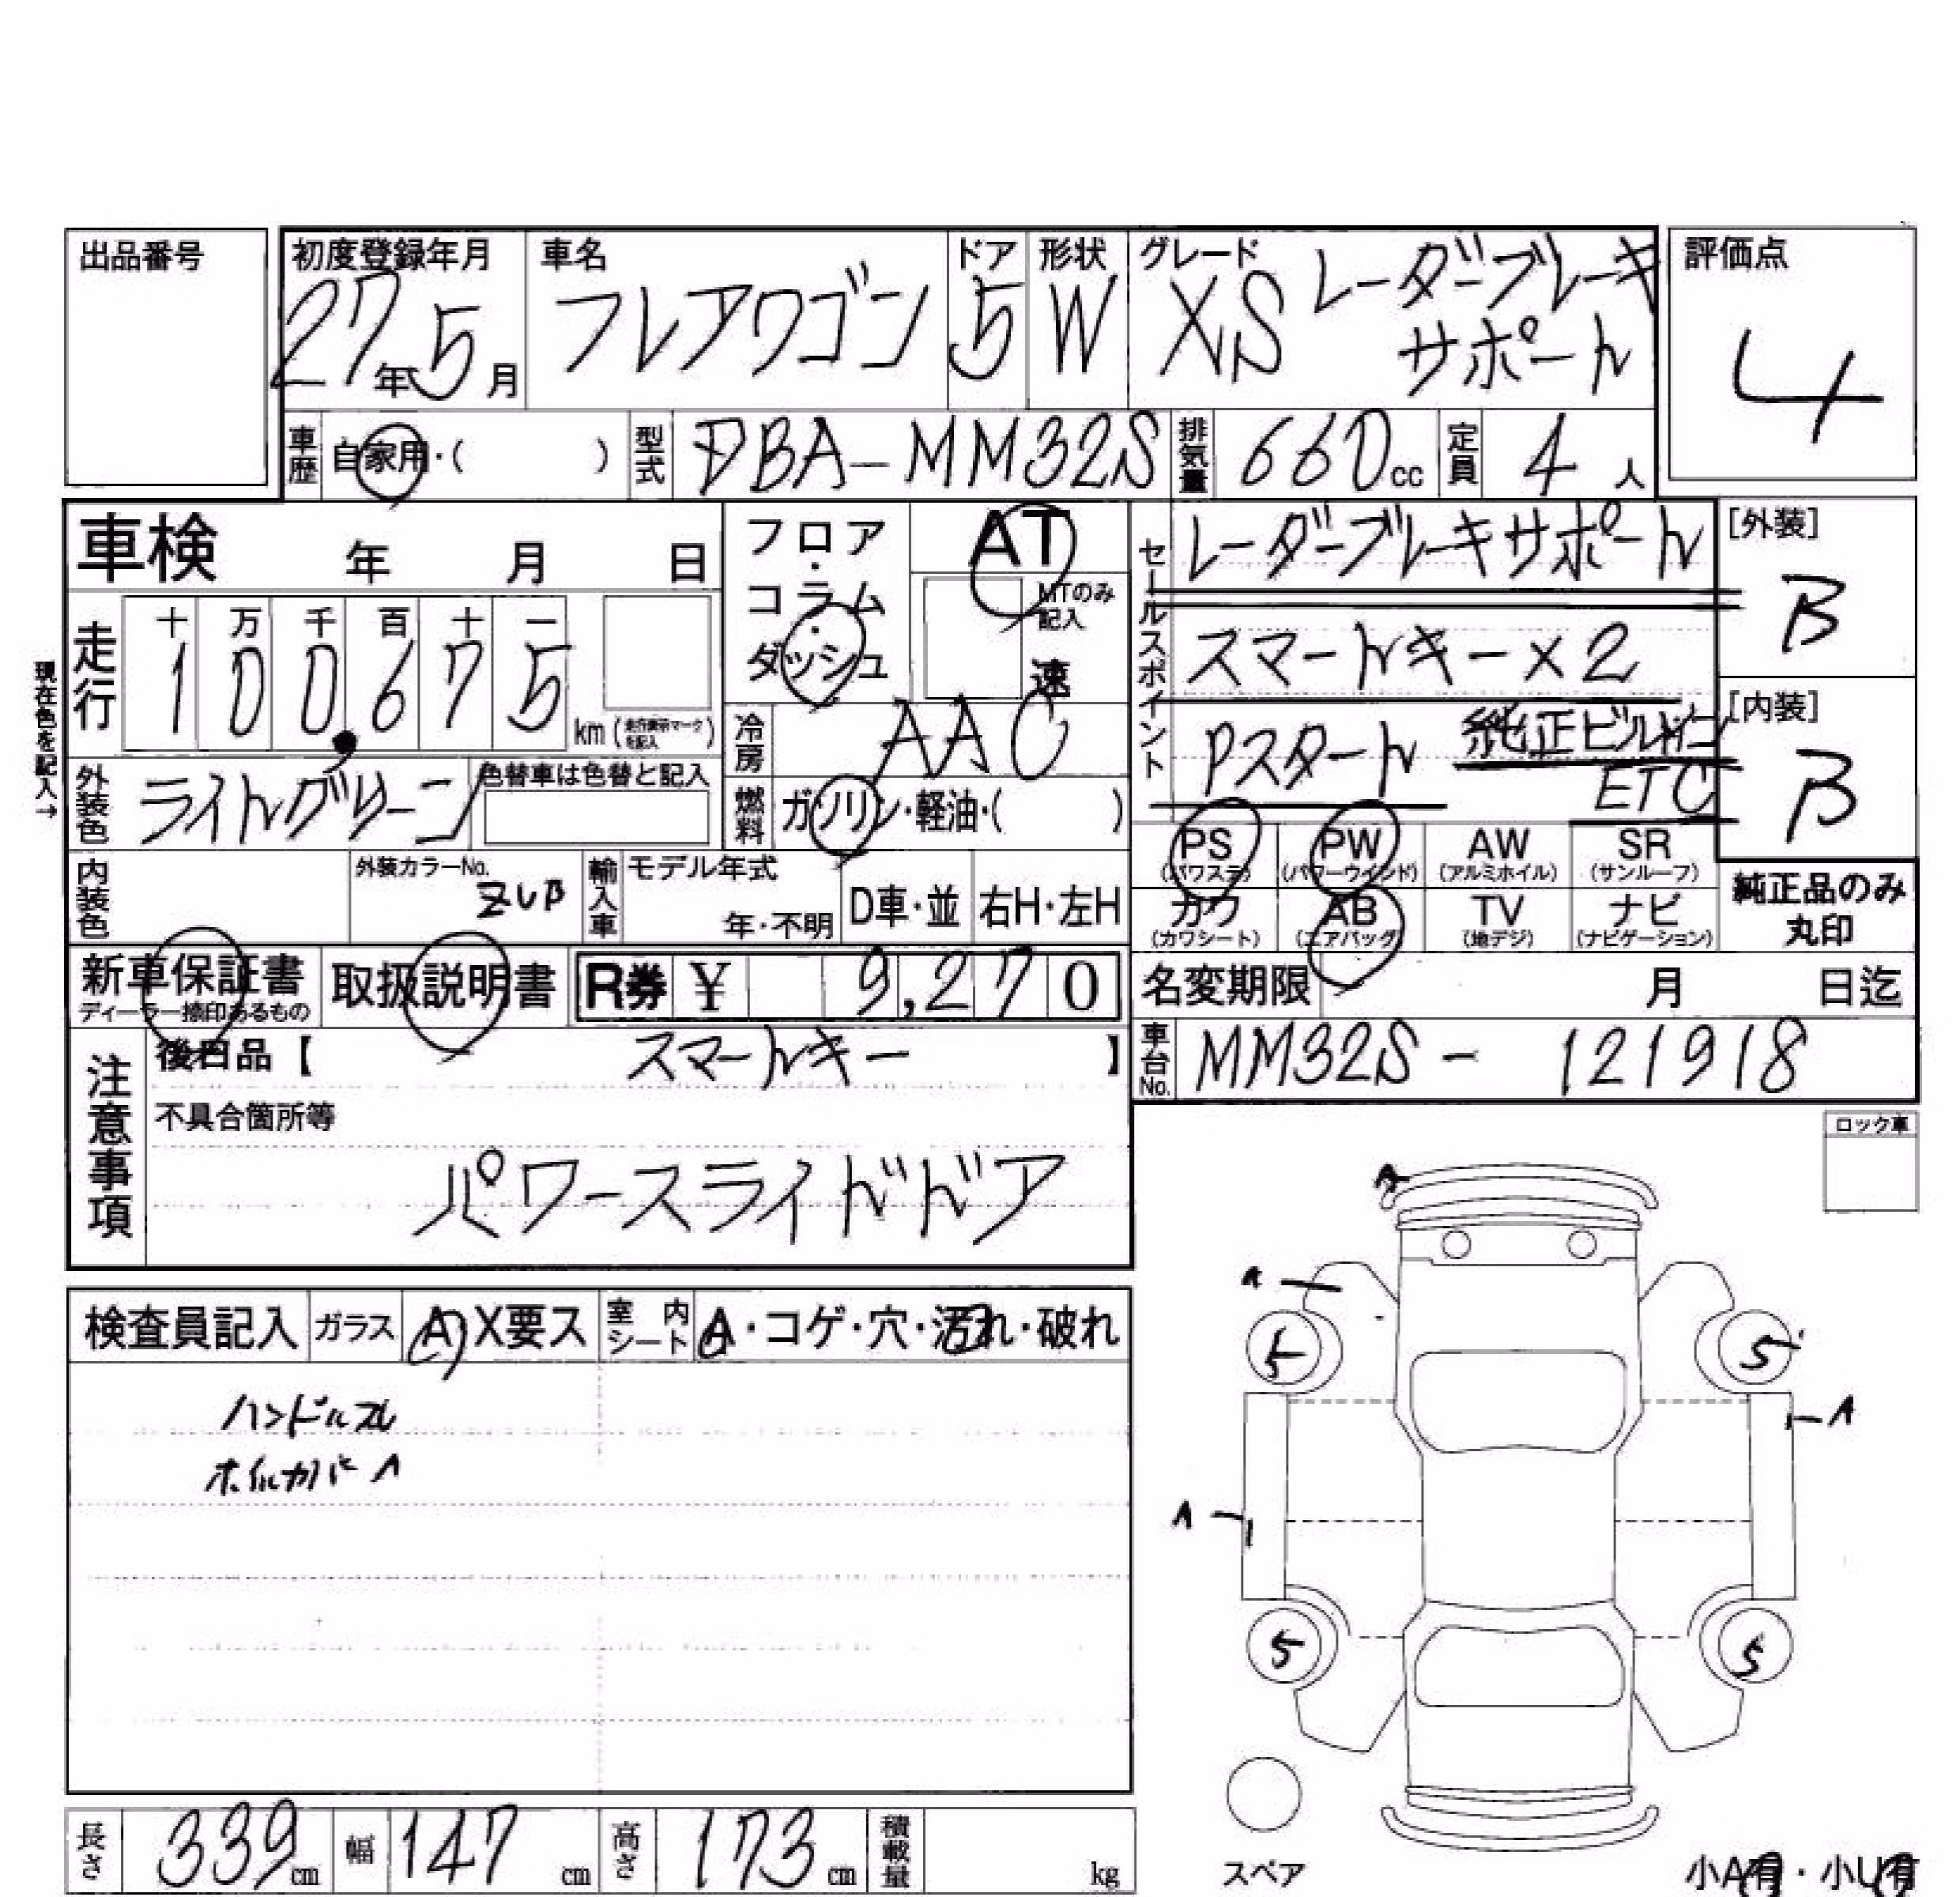 出品番号
初度登録年月 車名 ドア 形状 グレード 評価点
27年5月 フレアワゴン 5 W XS レーダーブレーキ
サポート
4
車歴 自家用・( ) 型式 DBA-MM32S 排気量 660cc 定員 4人
車検 年 月 日
フロア・コラム・ダッシュ
AT
MTのみ記入
速
セールスポイント
レーダーブレーキサポート
スマートキー×2
Pスタート 純正ビルトイン
ETC
[外装]
B
[内装]
B
現在色を記入→
走行 十 万 千 百 十 一
100,675 km (走行表示マークを記入)
冷房 AAC
外装色 ライトグリーン 色替車は色替と記入
燃料 ガソリン・軽油・( )
PS (パワステ) PW (パワーウインド) AW (アルミホイル) SR (サンルーフ)
カワ (カワシート) AB (エアバッグ) TV (地デジ) ナビ (ナビゲーション)
純正品のみ
丸印
内装色 外装カラーNo. ZUB 輸入車 モデル年式 年・不明 D車・並 右H・左H
新車保証書
ディーラー捺印あるもの
取扱説明書 R券 ¥ 9,270
名変期限 月 日迄
車台No. MM32S - 121918
注意事項
後日品【 スマートキー 】
不具合箇所等
パワースライドドア
ロック車
A
A
5 5
A
A
5 5
検査員記入 ガラス A X要ス 室内シート A・コゲ・穴・汚れ・破れ
ハンドルスレ
ホイルカバーA
長さ 339cm 幅 147cm 高さ 173cm 積載量 kg
スペア
小A有・小U有